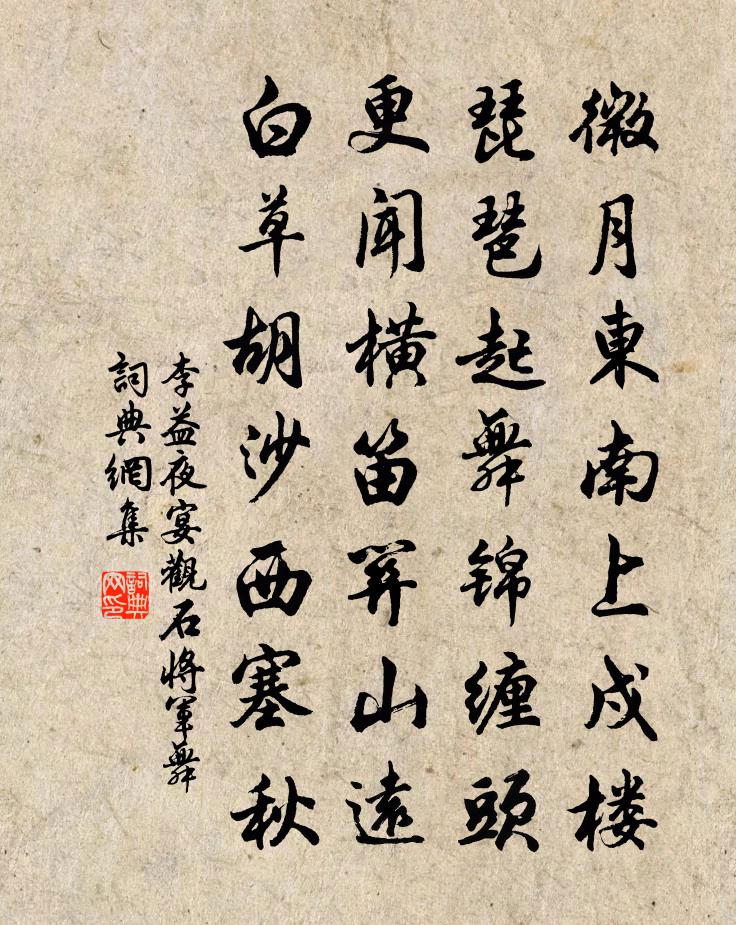 微月東南上戍楼
琵琶起舞錦缠頭
更聞橫笛関山遠
白草胡沙西塞秋
李益夜宴觀石將軍舞
詞典網集
詞典网印